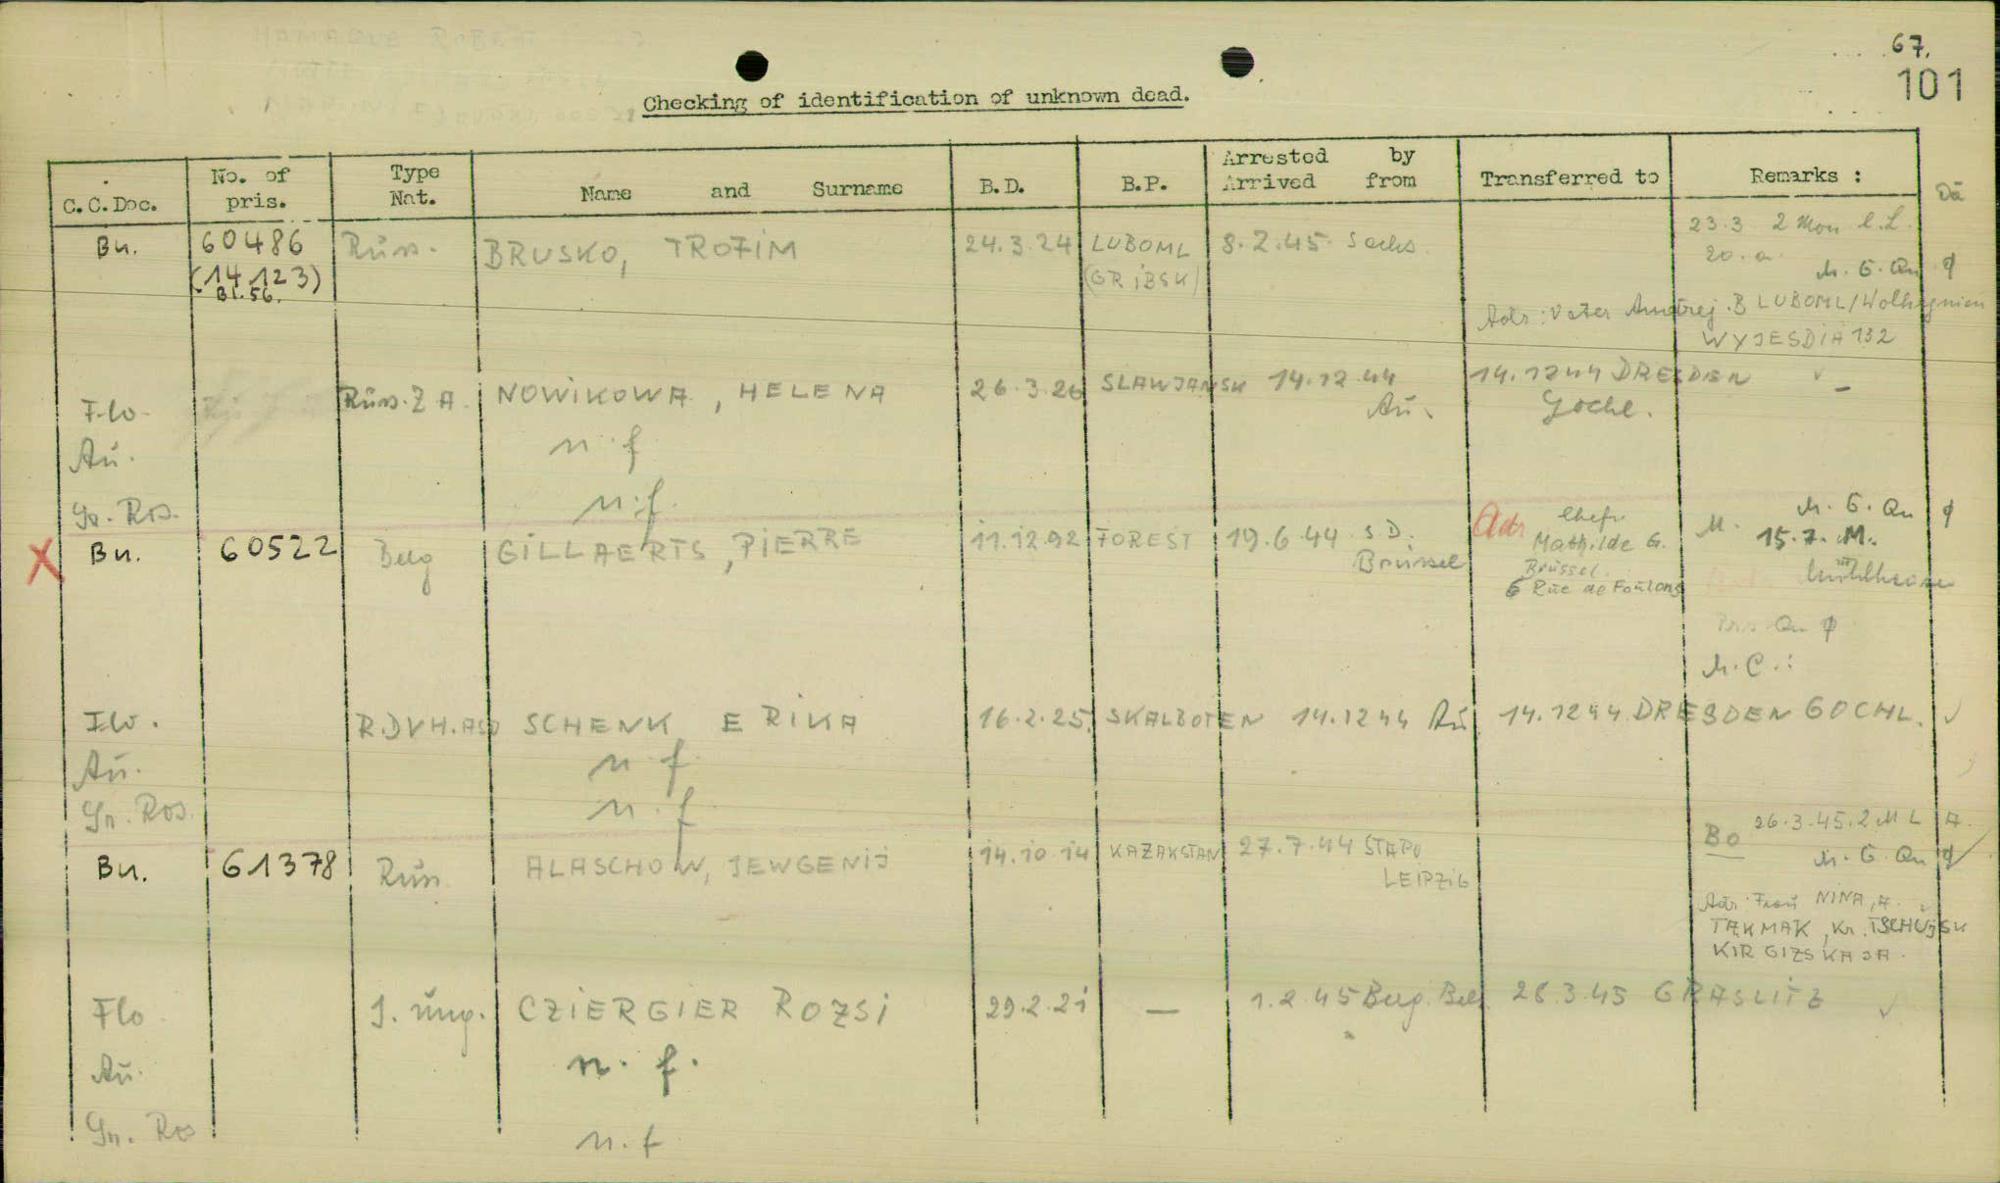 67.
101
Checking of identification of unknown dead.
C.C.Doc. No. of pris. Type Nat. Name and Surname B.D. B.P. Arrested by Arrived from Transferred to Remarks :
Bu. 60486 Russ. BRUSKO, TROFIM 24.3.24 LUBOML 8.2.45 Sachs. 23.3 2 Mon l.L.
(14 123) (GRIBSK) 20. a. M. G. Qu
Bl. 56.
Adr: Vater B LUBOML/Wolhynien
WYJESDIA 132
Flo. Russ. Z A. NOWIKOWA, HELENA 26.3.26 SLAWJANSK 14.12.44 14.1244 DRESDEN ✓ –
Au. n.f Au. Goehl.
Gr. Ros. n.f.
X Bu. 60522 Belg GILLAERTS, PIERRE 11.12.92 FOREST 19.6.44 S D. Brüssel Adr Ehefr M. M. G. Qu
Mathilde G. 15.7. M.
Brüssel. Mühlhausen
6 Rue de Foulons
Qu
M.C.:
Flo. R.DVH.ASO SCHENK ERIKA 16.2.25. SKALBOTEN 14.1244 Au 14.1244 DRESDEN GOEHL. ✓
Au. n.f
Gr. Ros. n.f
Bu. 61378 Russ ALASCHOW, JEWGENIJ 14.10.14 KAZAKSTAN 27.7.44 STAPO LEIPZIG Bo 26.3.45.2 M L A.
M. G. Qu
Adr. Frau NINA, A.
TAKMAK, Kr. TSCHUJSK
KIRGIZSKAJA.
Flo J. ung. CZIERGIER ROZSI 29.2.21 — 1.2.45 Berg. Bels 28.3.45 GRASLITZ ✓
Au. n.f.
Gr. Ros n.f